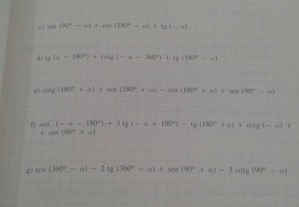 c) sen (90° − α) + cos (180° − α) + tg (− α)
d) tg (α − 180°) + cotg (− α − 360°) + tg (180° − α)
e) cotg (180° + α) + sen (180° + α) − cos (180° + α) + sen (90° − α)
f) sen (− α − 180°) + 3 tg (− α + 180°) − tg (180° + α) + cotg (− α) +
+ cos (90° + α)
g) cos (360° − α) − 2 tg (360° − α) + sen (90° + α) − 3 cotg (90° − α)